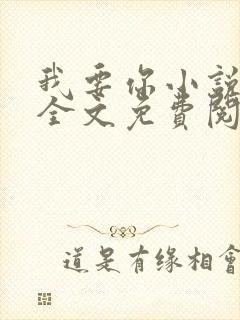 我要你小說
全文免費閱
道是有缘相會